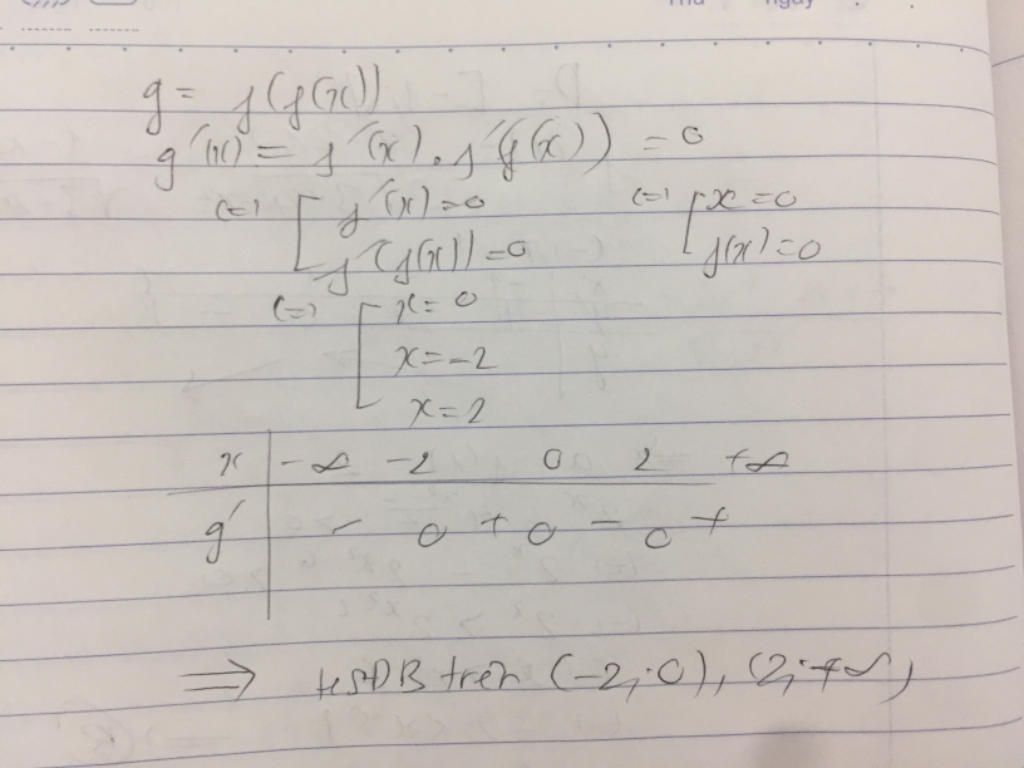 Thứ ngày
g = f(f(x))
g'(x) = f'(x).f'(f(x)) = 0
(=) [ f'(x) = 0 (=) [ x = 0
f'(f(x)) = 0 f(x) = 0
(=) [ x = 0
x = -2
x = 2
x -∞ -2 0 2 +∞
g' - 0 + 0 - 0 +
=> HSĐB trên (-2; 0), (2; +∞)